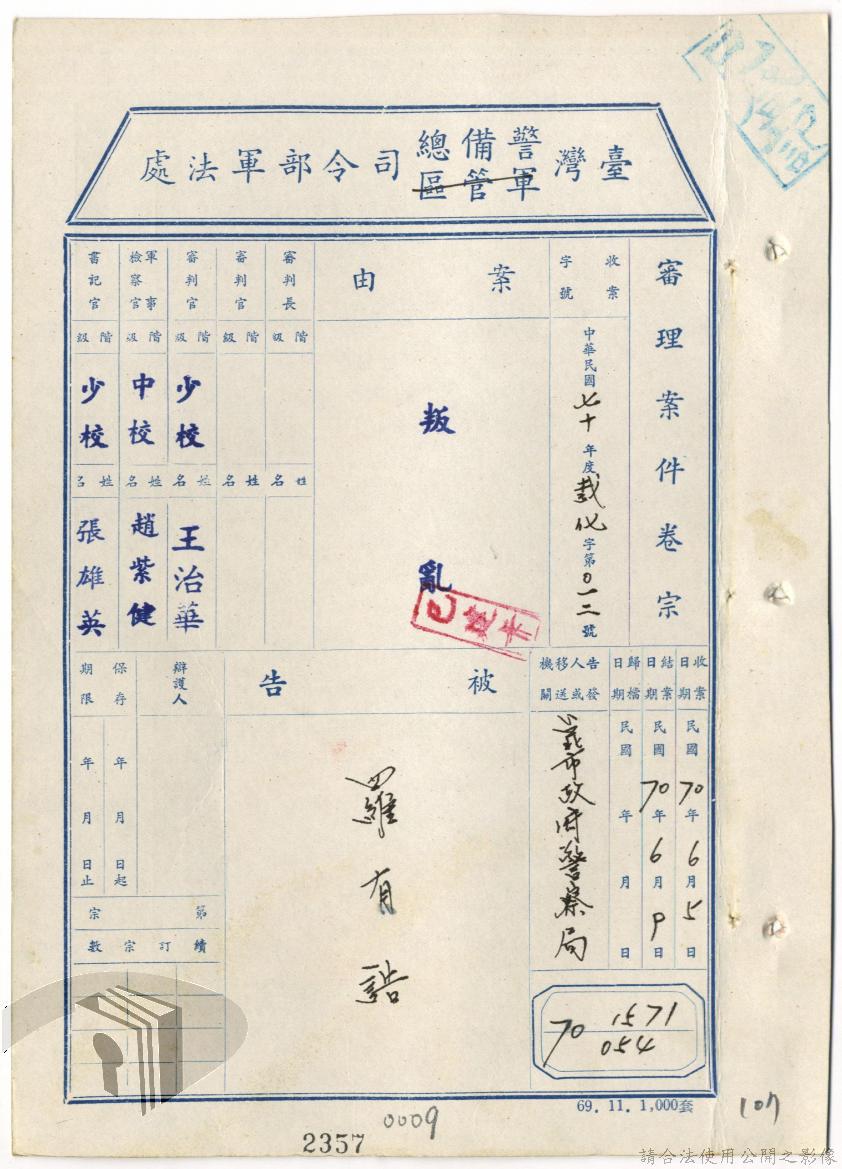 臺灣警備總司令部軍法處
軍管區
審理案件卷宗
收案字號
中華民國七十年度裁化字第0一二號
案由
叛亂
審判長
階級
姓名
審判官
階級
姓名
審判官
階級
少校
姓名
王治華
軍事檢察官
階級
中校
姓名
趙紫健
書記官
階級
少校
姓名
張雄英
收案日期
民國70年6月5日
結案日期
民國70年6月9日
歸檔日期
民國 年 月 日
告發人或移送機關
市政府警察局
被告
羅有誥
辯護人
保存期限
年 月 日起
年 月 日止
第 宗
續訂宗數
70 1571
054
69. 11. 1,000套
107
0009
2357
請合法使用公開之影像